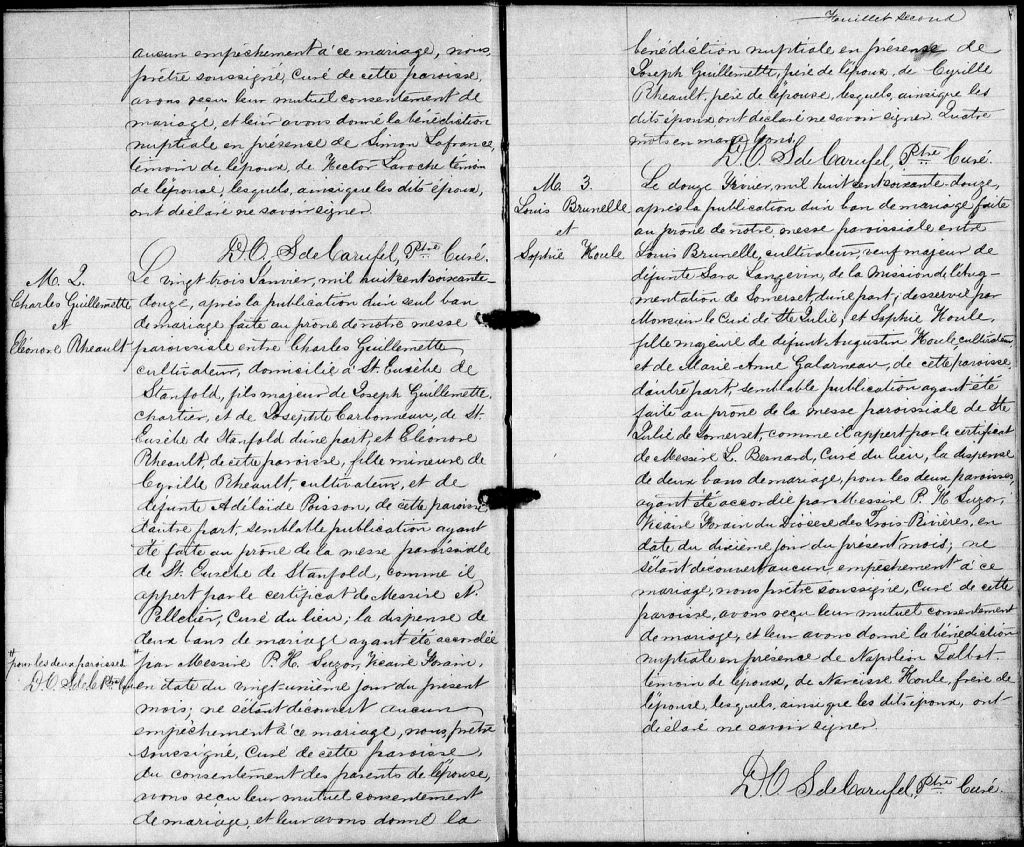 aucun empêchement à ce mariage, nous,
prêtre soussigné, Curé de cette paroisse,
avons reçu leur mutuel consentement de
mariage, et leur avons donné la bénédiction
nuptiale en présence de Simon Lafrance,
témoin de l'époux, de Hector Laroche témoin
de l'épouse, lesquels, ainsi que les dits époux,
ont déclaré ne savoir signer.
D. O. S de Carufel, Ptre Curé.
M. 2.
Charles Guillemette
et
Eléonore Rheault
Le vingt trois Janvier, mil huit cent soixante-
douze, après la publication d'un seul ban
de mariage faite au prône de notre messe
paroissiale entre Charles Guillemette,
cultivateur, domicilié à St. Eusèbe de
Stanfold, fils majeur de Joseph Guillemette,
chartier, et de Josephte Carbonneau, de St.
Eusèbe de Stanfold d'une part, et Eléonore
Rheault, de cette paroisse, fille mineure de
Cyrille Rheault, cultivateur, et de
défunte Adélaïde Poisson, de cette paroisse,
d'autre part, semblable publication ayant
été faite au prône de la messe paroissiale
de St. Eusèbe de Stanfold, comme il
appert par le certificat de Messire N.
Pelletier, Curé du lieu; la dispense de
deux bans de mariage ayant été accordée
"pour les deux paroisses
D. O. S. de C. Ptre Cu
"par Messire P. H. Suzor, Vicaire Forain,
en date du vingt-unième jour du présent
mois; ne s'étant découvert aucun
empêchement à ce mariage, nous, prêtre
soussigné, Curé de cette paroisse,
du consentement des parents de l'épouse,
avons reçu leur mutuel consentement
de mariage, et leur avons donné la
Feuillet second
bénédiction nuptiale en présence de
Joseph Guillemette, père de l'époux, de Cyrille
Rheault, père de l'épouse, lesquels, ainsi que les
dits époux ont déclaré ne savoir signer. Quatre
mots en marge bons.
D. O. S de Carufel, Ptre Curé.
M. 3.
Louis Brunelle
et
Sophie Houle
Le douze Février, mil huit cent soixante-douze,
après la publication d'un ban de mariage faite
au prône de notre messe paroissiale entre
Louis Brunelle, cultivateur, veuf majeur de
défunte Sara Langevin, de la Mission de l'Aug-
mentation de Somerset, d'une part, desservie par
Monsieur le Curé de Ste Julie, et Sophie Houle,
fille majeure de défunt Augustin Houle, cultivateur,
et de Marie Anne Galarneau, de cette paroisse,
d'autre part, semblable publication ayant été
faite au prône de la messe paroissiale de Ste
Julie de Somerset, comme il appert par le certificat
de Messire L. Bernard, Curé du lieu, la dispense
de deux bans de mariage, pour les deux paroisses,
ayant été accordée par Messire P. H. Suzor,
Vicaire Forain du Diocèse des Trois-Rivières, en
date du dixième jour du présent mois; ne
s'étant découvert aucun empêchement à ce
mariage, nous prêtre soussigné, Curé de cette
paroisse, avons reçu leur mutuel consentement
de mariage, et leur avons donné la bénédiction
nuptiale en présence de Napoléon Talbot
témoin de l'époux, de Narcisse Houle, frère de
l'épouse, lesquels, ainsi que les dits époux, ont
déclaré ne savoir signer.
D. O S de Carufel, Ptre Curé.